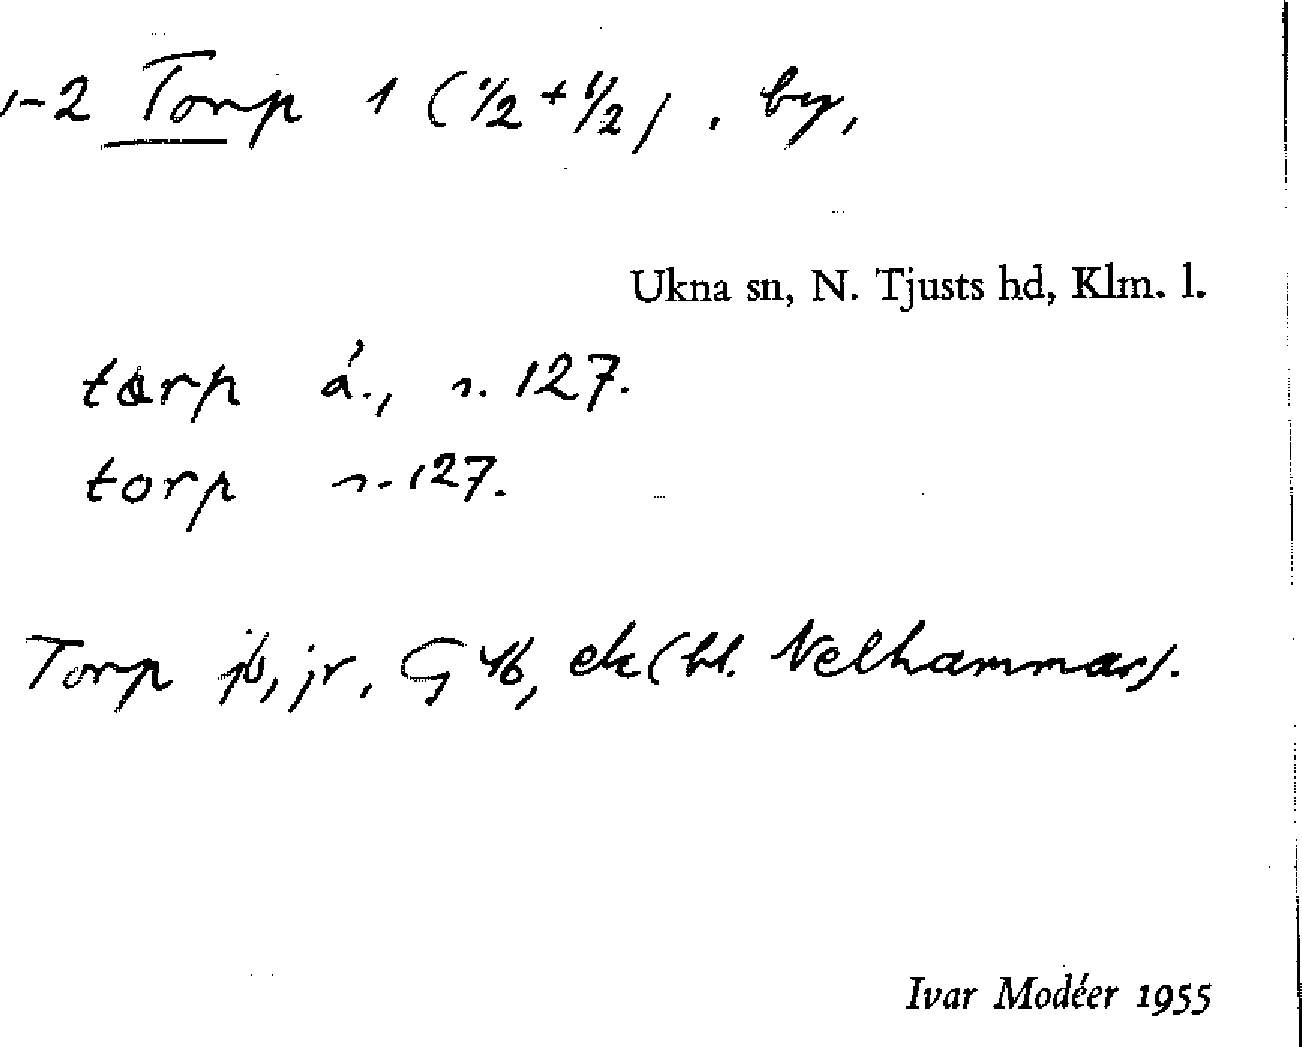 1-2 Torp 1 (1/2 + 1/2), by,
Ukna sn, N. Tjusts hd, Klm. l.
tɑrp á., s. 127.
torp s. 127.
Torp jb, jr, G 46, ek (bl. Velhammar).
Ivar Modéer 1955